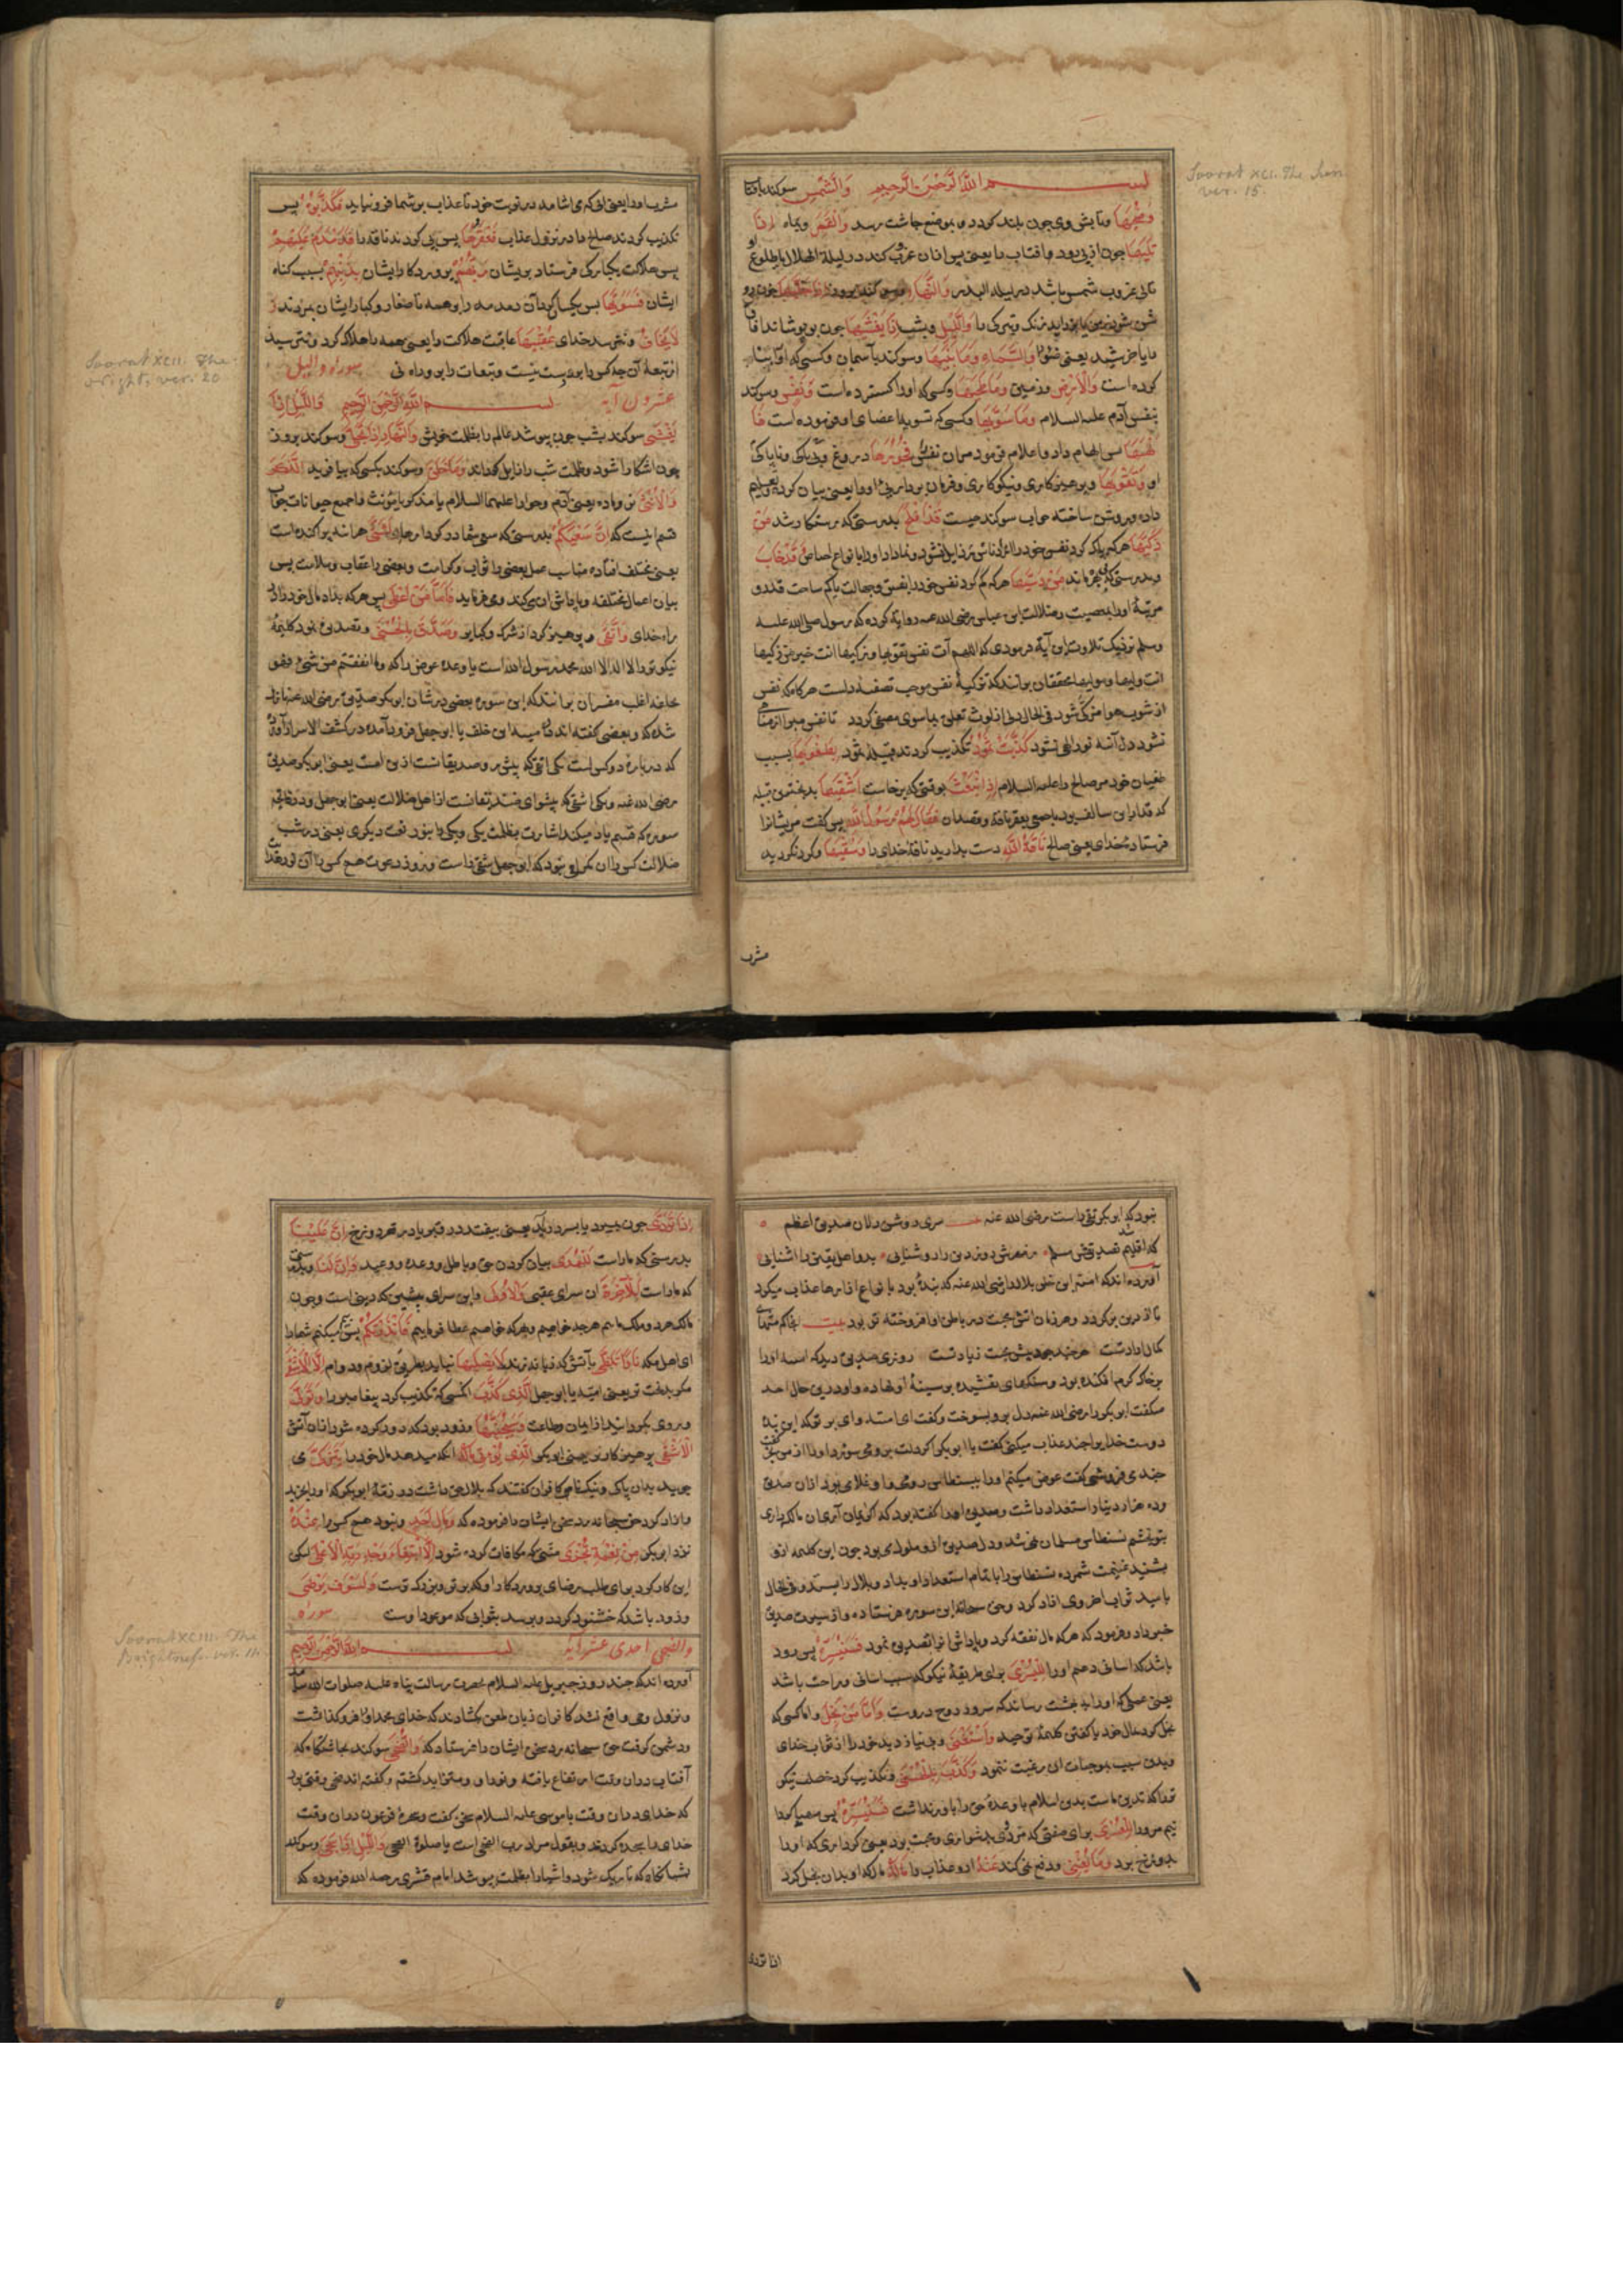 بسم الله الرحمن الرحيم وَالشَّمْسِ سوکند بافتا
وَضُحٰيهَا وتابش وی چون بلند کردد و بموضع چاشت رسد وَالْقَمَرِ وبماه اِذَا
تَلٰيهَا چون از پی رود افتاب را یعنی پس ازان غروب کند در لیلة الهلال یا طلوع
غروب شمس باشد در لیلة البدر وَالنَّهَارِ
وَالَّيْلِ وبشب اِذَا يَغْشٰيهَا چون بپوشاند افتا
یعنی وَالسَّمَاءِ وَمَا بَنٰيهَا وسوکند بآسمان وکسی که او را بنا
کرده است وَالْاَرْضِ وزمین وَمَا طَحٰيهَا وکسی که او را کسترده است وَنَفْسٍ وسوکند
بنفس آدم علیه السلام وَمَا سَوّٰيهَا وکسی که تسویه اعضای او فرموده است فَا
لْهَمَهَا پس الهام داد و اعلام فرمود مران نفس را فُجُوْرَهَا دروغ وبی باکی وناپاکی
او وَتَقْوٰيهَا وپرهیزکاری ونیکوکاری وفرمان برداری او را یعنی بیان کرد
جواب سوکند چیست قَدْ اَفْلَحَ بدرستی که رستکار شد مَنْ
زَكّٰيهَا هرکه پاک کرد نفس خود را وَقَدْ خَابَ
وبدرستی که بی بهره ماند مَنْ دَسّٰيهَا هرکه کم کرد نفس خود را بفسق وجهالت
مرتبهٔ او را بمعصیت وضلالت ابن عباس رضی الله عنه روایة کرده که رسول صلی الله علیه
وسلم نزدیک تلاوت این آیة فرمودی که اللهم آت نفسی تقویها وزکیها انت خیر من زکیها
انت ولیها ومولیها محققان برانند که تزکیهٔ نفس موجب تصفیهٔ دلست هرکاه که نفس
از شوب هوا مزکی شود فی الحال دل از لوث تعلق بماسوی مصفی کردد تا نفس مبرا از مناهی
نشود دل آئنه نور الهی نشود كَذَّبَتْ ثَمُوْدُ تکذیب کردند قبیله ثمود بِطَغْوٰيهَا بسبب
طغیان خود مر صالح را علیه السلام اِذِ انْبَعَثَ بوقتی که برخاست اَشْقٰيهَا بدبخترین قبیله
که قدار ابن سالف بود فَقَالَ لَهُمْ رَسُوْلُ اللّٰهِ پس کفت مر ایشانرا
فرستادهٔ خدای یعنی صالح نَاقَةَ اللّٰهِ دست بدارید ناقهٔ خدای را وَسُقْيٰهَا وکرد نکردید
شرب
Soorat XCI. The Sun
ver. 15.
شرب او را یعنی ابی که می اشامد در نوبت خود تا عذاب بر شما فرو نیاید فَكَذَّبُوْهُ پس
تکذیب کردند صالح را در نزول عذاب فَعَقَرُوْهَا پس پی کردند ناقه را فَدَمْدَمَ عَلَيْهِمْ
پس هلاکت یکبارکی فرستاد بریشان رَبُّهُمْ پروردکار ایشان بِذَنْۢبِهِمْ بسبب کناه
ایشان فَسَوّٰيهَا پس یکسان کرد آن دمدمه را وهمه صغار وکبار ایشان بمردند وَ
لَا يَخَافُ ونمی ترسد خدای عُقْبٰيهَا عاقبت هلاکت را یعنی همه را هلاک کرد ونترسید
از تبعهٔ آن چه کس را بر وی دست نیست وتبعات را برو راه نی سوره واللیل
عشرون آیه بسم الله الرحمن الرحیم وَالَّيْلِ اِذَا
يَغْشٰى سوکند بشب چون بپوشد عالم را بظلمت خویش وَالنَّهَارِ اِذَا تَجَلّٰى وسوکند بروز
چون اشکارا شود وظلمت شب را زایل کرداند وَمَا خَلَقَ وسوکند بکسی که بیافرید الذَّكَرَ
وَالْاُنْثٰى نر وماده یعنی آدم وحوا را علیهما السلام یا مذکر یا مؤنث از جمیع حیوانات جواب
قسم اینست که اِنَّ سَعْيَكُمْ بدرستی که سعی شما در کردارها لَشَتّٰى هرآئنه پراکنده است
یعنی مختلف افتاده مناسب عمل بعضی را ثواب وکرامت وبعضی را عقاب وملامت پس
بیان اعمال مختلفه وپاداش آن می کند ومی فرماید فَاَمَّا مَنْ اَعْطٰى پس هرکه بداد مال خود را در
راه خدای وَاتَّقٰى وپرهیز کرد از شرک وکبایر وَصَدَّقَ بِالْحُسْنٰى وتصدیق نمود کلیمهٔ
نیکوترا لا اله الا الله محمد رسول الله است یا وعده عوض را که وما انفقتم من شئ فهو
یخلفه اغلب مفسران برانند که این سوره بعضی در شان ابوبکر صدیق رضی الله عنه نازل
شده وبعضی کفته اند امیه ابن خلف یا ابوجهل فرود آمده در کشف الاسرار آورده
که در بارهٔ دو کس است یکی اتقی که پیشرو صدیقانست ازین امت یعنی ابوبکر صدیق
رضی الله عنه ویکی اشقی که پیشوای زندیقانست از اهل ضلالت یعنی ابوجهل ودر فاتحه
سوره که قسم یاد میکند اشارت بظلمت یکی ویکی را بنور نعت دیکری یعنی در شب
ضلالت کس را ان کمراهی نبود که ابوجهل شقی راست ودر روز دعوت هیچ کس را آن نور هدایت
Soorat XCII. The
Night, ver. 20
نبود که ابوبکر تقی راست رضی الله عنه سری روشن دلان صدیق اعظم
که اقلیم تصدیقش مسلم شد ز مهرش روز دین را روشنایی بدو اهل یقین را اشنایی
آورده اند که امیه ابن خلف بلال را رضی الله عنه که بندهٔ بود بانواع ازارها عذاب میکرد
تا از دین برکردد وهر زمان اتش محبت در باطن او افروخته تر بود بیت
روزی صدیق دید که امیه او را
بر خاک کرم افکنده بود وسنکهای تفسیده بر سینهٔ او نهاده واو دران حال احد
میکفت ابوبکر را رضی الله عنه دل برو بسوخت وکفت ای امیه وای بر تو که این بندهٔ
دوست خدایرا چند عذاب میکنی کفت یا ابوبکر اکر دلت برو می سوزد او را از من بخر کفت
بچندی فروشی کفت عوض میکنم او را بنسطاس رومی واو غلامی بود ازان صدیق
وده هزار دینار استعداد داشت وصدیق او را کفته بود که اکر ایمان آری آن مالکه داری
بتو بخشم نسطاس مسلمان نمی شد ودل صدیق ازو ملول می بود چون این کلیمه ازو
بشنید غنیمت شمرده نسطاس را با تمام استعداد او بداد وبلال را بستد وفی الحال
بامید ثواب اخروی ازاد کرد وحق سبحانه این سوره فرستاده واز سیرت صدیق
خبر داد وفرمود که هرکه مال نفقه کرد وپاداش انرا تصدیق نمود فَسَنُيَسِّرُهٗ پس زود
باشد که اسانی دهیم او را لِلْيُسْرٰى برای طریقهٔ نیکو که سبب اسانی وراحت باشد
یعنی عملی که او را به بهشت رساند وَاَمَّا مَنْۢ بَخِلَ واما کسی که
بخل کرد بمال خود یا کفتن کلمهٔ توحید وَاسْتَغْنٰى وبی نیاز دید خود را از ثواب خدای
وبدین سبب بموجبات ان رغبت ننمود وَكَذَّبَ بِالْحُسْنٰى وتکذیب کرد خصلت نیکو
ترا که تدین ماست بدین اسلام یا وعدهٔ حق را باور نداشت فَسَنُيَسِّرُهٗ پس مهیا کردا
نیم مر او را لِلْعُسْرٰى برای صفتی که مؤدی بدشواری ومحنت بود یعنی کرداری که او را
بدوزخ برد وَمَا يُغْنِيْ ودفع نمی کند عَنْهُ ازو عذاب را مَالُهٗ مال او که او بدان بخل کرد
اذا تردی
اِذَا تَرَدّٰى چون بمیرد یا بسر در آید یعنی بیفتد در قبر یا در قعر دوزخ اِنَّ عَلَيْنَا
بدرستی که ماراست لَلْهُدٰى بیان کردن حق وباطل ووعده ووعید وَاِنَّ لَنَا وبدرستی
که ماراست لَلْاٰخِرَةَ ان سرای عقبی وَالْاُوْلٰى واین سرای پیشین که دنیی است وچون
مالک هر دو ملک مائیم هرچه خواهیم وبهرکه خواهیم عطا فرمائیم فَاَنْذَرْتُكُمْ پس بیم میکنم شمارا
ای اهل مکه نَارًا تَلَظّٰى بآتشی که زبانه زند لَا يَصْلٰيهَا نیاید بطریق لزوم ودوام اِلَّا الْاَشْقَى
مکر بدبخت تر یعنی امیه یا ابوجهل الَّذِيْ كَذَّبَ انکسی که تکذیب کرد پیغامبر را وَتَوَلّٰى
وروی بکردانید از ایمان وطاعت وَسَيُجَنَّبُهَا وزود بود که دور کرده شود ازان آتش
الْاَتْقَى پرهیزکارتر یعنی ابوبکر الَّذِيْ يُؤْتِيْ مَالَهٗ انکه میدهد مال خود را يَتَزَكّٰى می
جوید بدان پاکی ونیکنامی کافران کفتند که بلال حقی داشت در ذمهٔ ابوبکر که او را بخرید
وازاد کرد حق سبحانه رد سخن ایشان را فرموده که وَمَا لِاَحَدٍ ونبود هیچ کس را عِنْدَهٗ
نزد ابوبکر مِنْ نِعْمَةٍ تُجْزٰى منتی که مکافات کرده شود اِلَّا ابْتِغَاءَ وَجْهِ رَبِّهِ الْاَعْلٰى لیکن
این کار کرد برای طلب رضای پروردکار او که برتر وبزرک ترست وَلَسَوْفَ يَرْضٰى
وزود باشد که خشنود کردد وبرسد بثوابی که موعود اوست سوره
والضحی احدی عشر آیه بسم الله الرحمن الرحیم
آورده اند که چند روز جبریل علیه السلام بحضرت رسالت پناه علیه صلوات الله نیامد
ونزول وحی واقع نشد کافران زبان طعن بکشادند که خدای محمد او را فرو کذاشت
ودشمن کرفت حق سبحانه رد سخن ایشان را فرستاد که وَالضُّحٰى سوکند بچاشتکاه که
آفتاب دران وقت ارتفاع یافته ونور او متزاید کشته وکفته اند ضحی وقتی بود
که خدای دران وقت با موسی علیه السلام سخن کفت وسحرهٔ فرعون دران وقت
خدای را سجده کردند وبقول مراد رب الضحی است یا صلوة الضحی وَالَّيْلِ اِذَا سَجٰى وسوکند
بشبانکاه که تاریک شود واشیا را بظلمت بپوشد امام قشیری رحمه الله فرموده که
Soorat XCIII. The
Brightness. ver. 11.